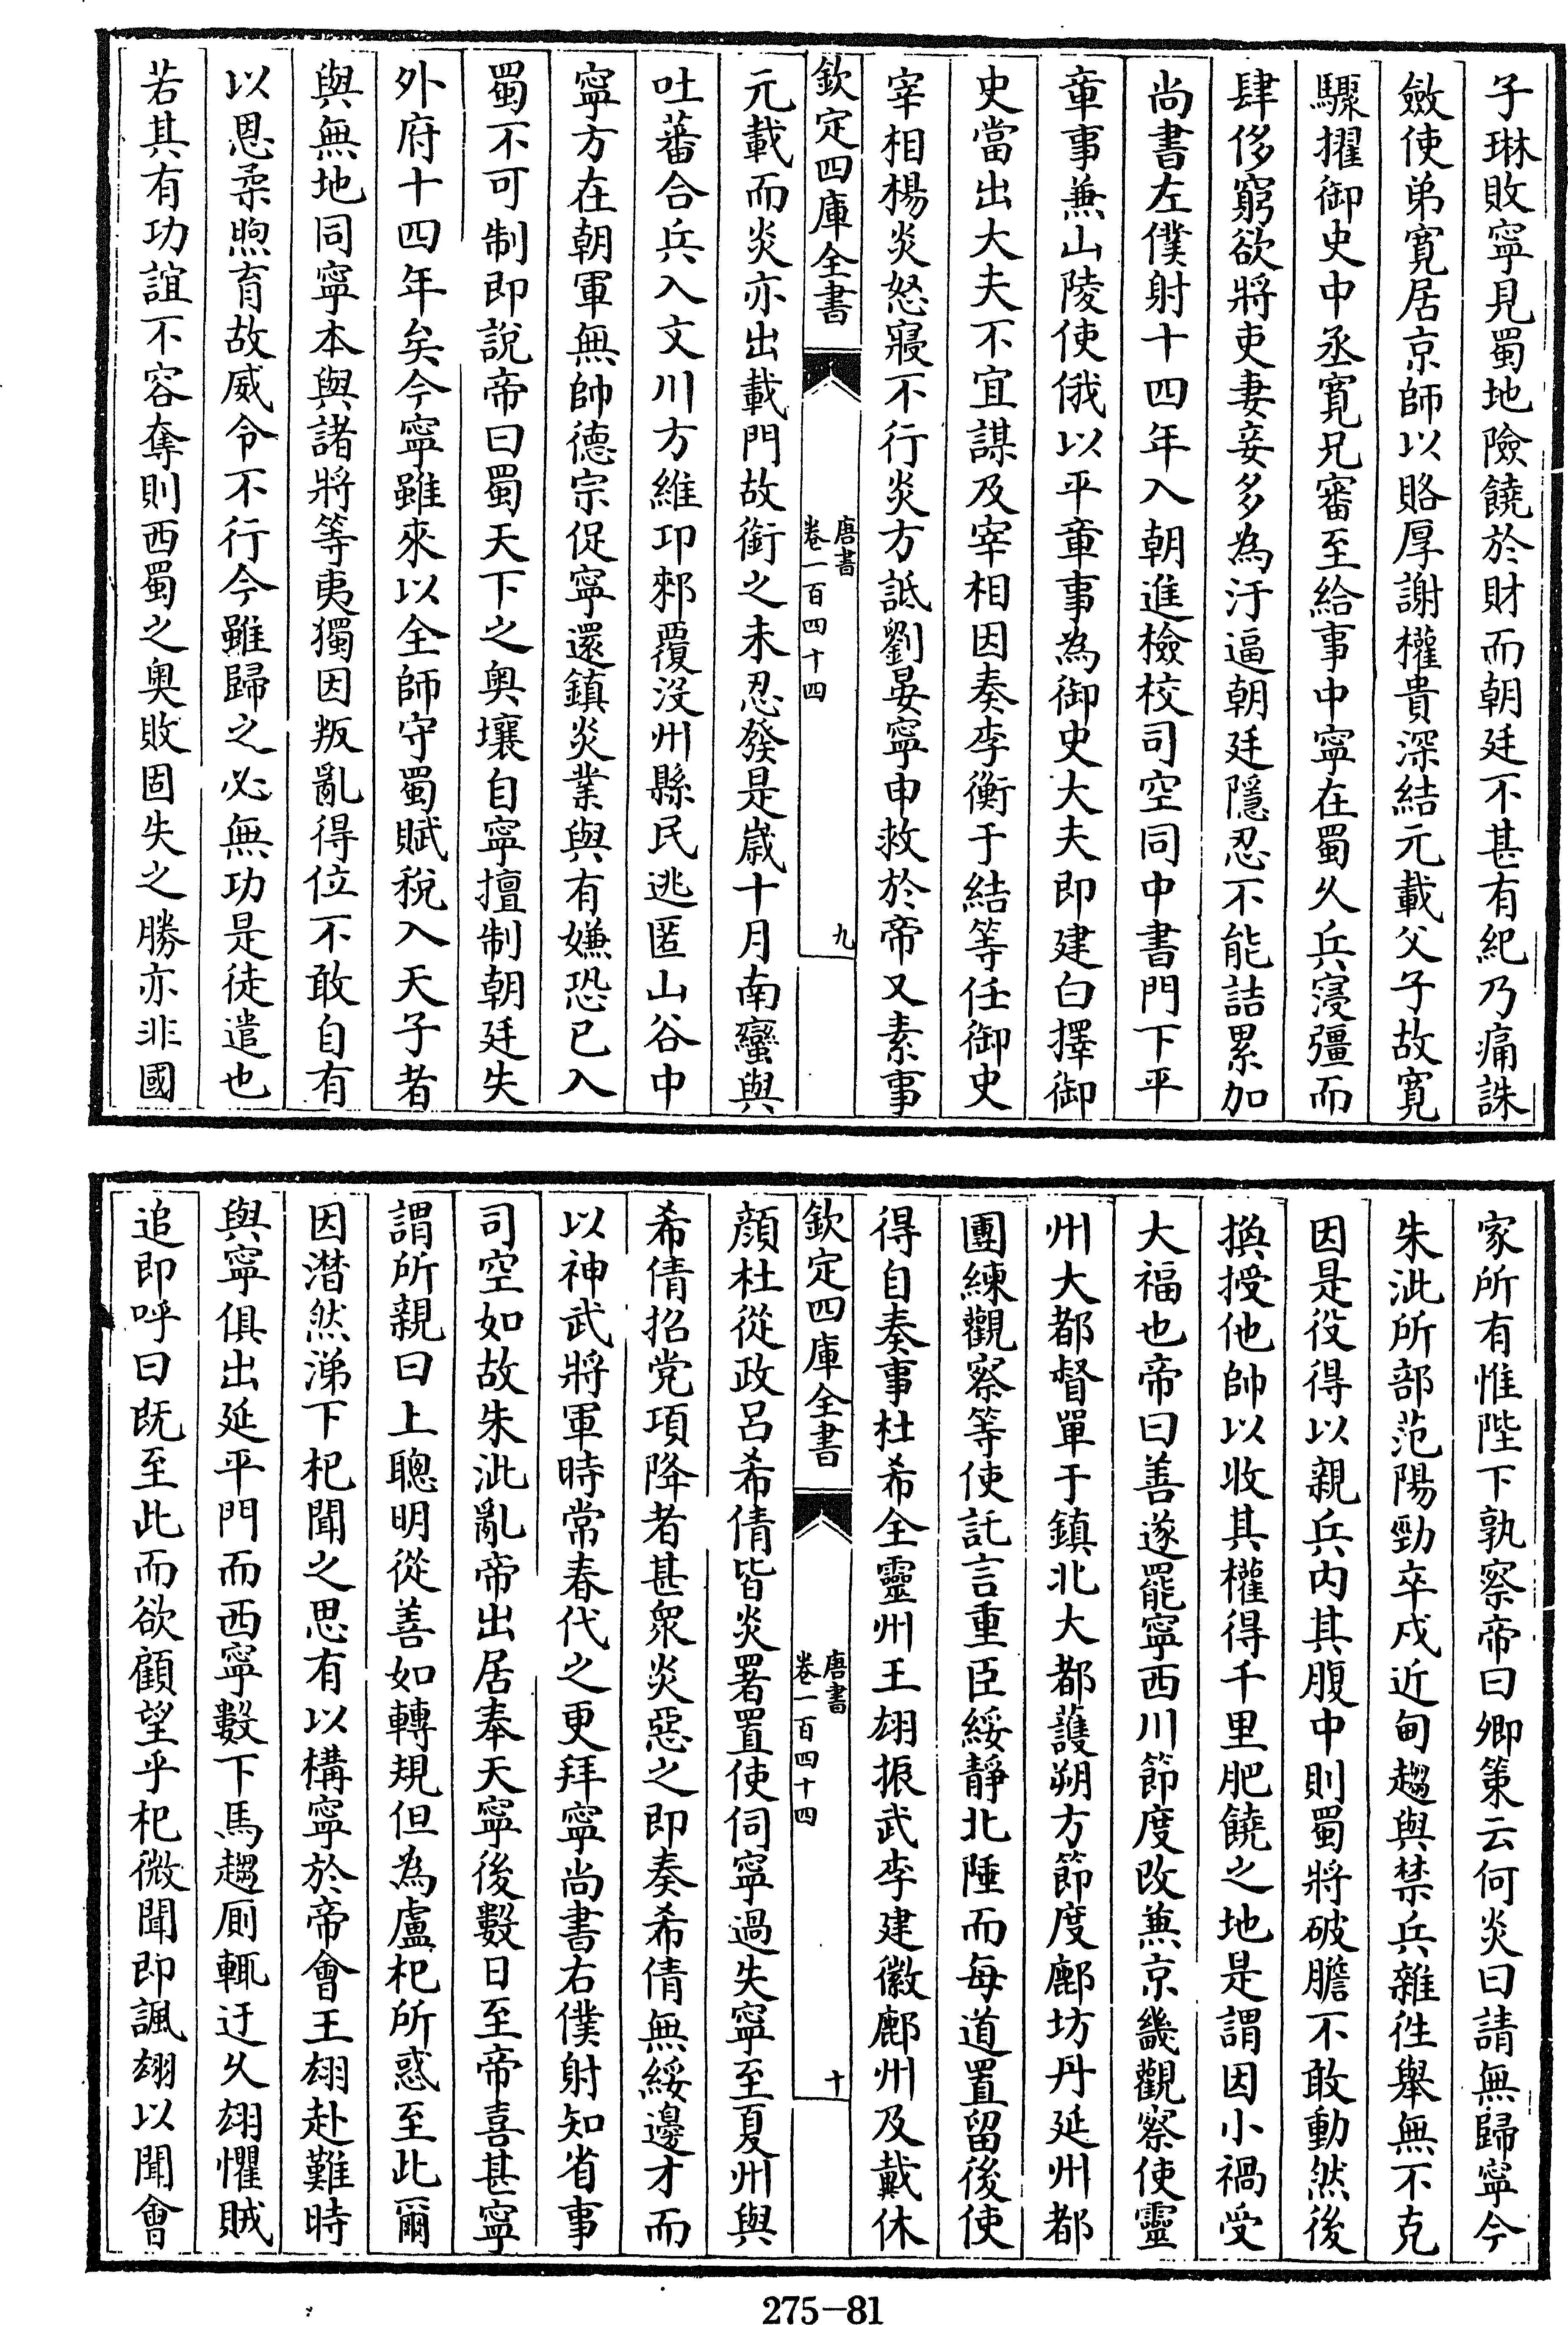 子琳敗寧見蜀地險饒於財而朝廷不甚有紀乃痛誅
斂使弟寛居京師以賂厚謝權貴深結元載父子故寛
驟擢御史中丞寛兄審至給事中寧在蜀久兵寖彊而
肆侈窮欲將吏妻妾多為汙逼朝廷隱忍不能詰累加
尚書左僕射十四年入朝進檢校司空同中書門下平
章事兼山陵使俄以平章事為御史大夫即建白擇御
史當出大夫不宜謀及宰相因奏李衡于結等任御史
宰相楊炎怒寢不行炎方詆劉晏寧申救於帝又素事
欽定四庫全書
唐書
卷一百四十四
九
元載而炎亦出載門故銜之未忍發是歳十月南蠻與
吐蕃合兵入文川方維卭郲覆沒州縣民逃匿山谷中
寧方在朝軍無帥德宗促寧還鎮炎業與有嫌恐已入
蜀不可制即說帝曰蜀天下之奥壤自寧擅制朝廷失
外府十四年矣今寧雖來以全師守蜀賦稅入天子者
與無地同寧本與諸將等夷獨因叛亂得位不敢自有
以恩柔煦育故威令不行今雖歸之必無功是徒遣也
若其有功誼不容奪則西蜀之奥敗固失之勝亦非國
家所有惟陛下孰察帝曰卿策云何炎曰請無歸寧今
朱泚所部范陽勁卒戍近甸趨與禁兵雜徃舉無不克
因是役得以親兵内其腹中則蜀將破膽不敢動然後
換授他帥以收其權得千里肥饒之地是謂因小禍受
大福也帝曰善遂罷寧西川節度改兼京畿觀察使靈
州大都督單于鎮北大都䕶朔方節度鄜坊丹延州都
團練觀察等使託言重臣綏靜北陲而每道置留後使
得自奏事杜希全靈州王翃振武李建徽鄜州及戴休
欽定四庫全書
唐書
卷一百四十四
十
顔杜從政呂希倩皆炎署置使伺寧過失寧至夏州與
希倩招党項降者甚衆炎惡之即奏希倩無綏邊才而
以神武將軍時常春代之更拜寧尚書右僕射知省事
司空如故朱泚亂帝出居奉天寧後數日至帝喜甚寧
謂所親曰上聰明從善如轉規但為盧杞所惑至此爾
因潸然涕下杞聞之思有以構寧於帝會王翃赴難時
與寧俱出延平門而西寧數下馬趨厠輒迂久翃懼賊
追即呼曰旣至此而欲顧望乎杞微聞即諷翃以聞會
275-81